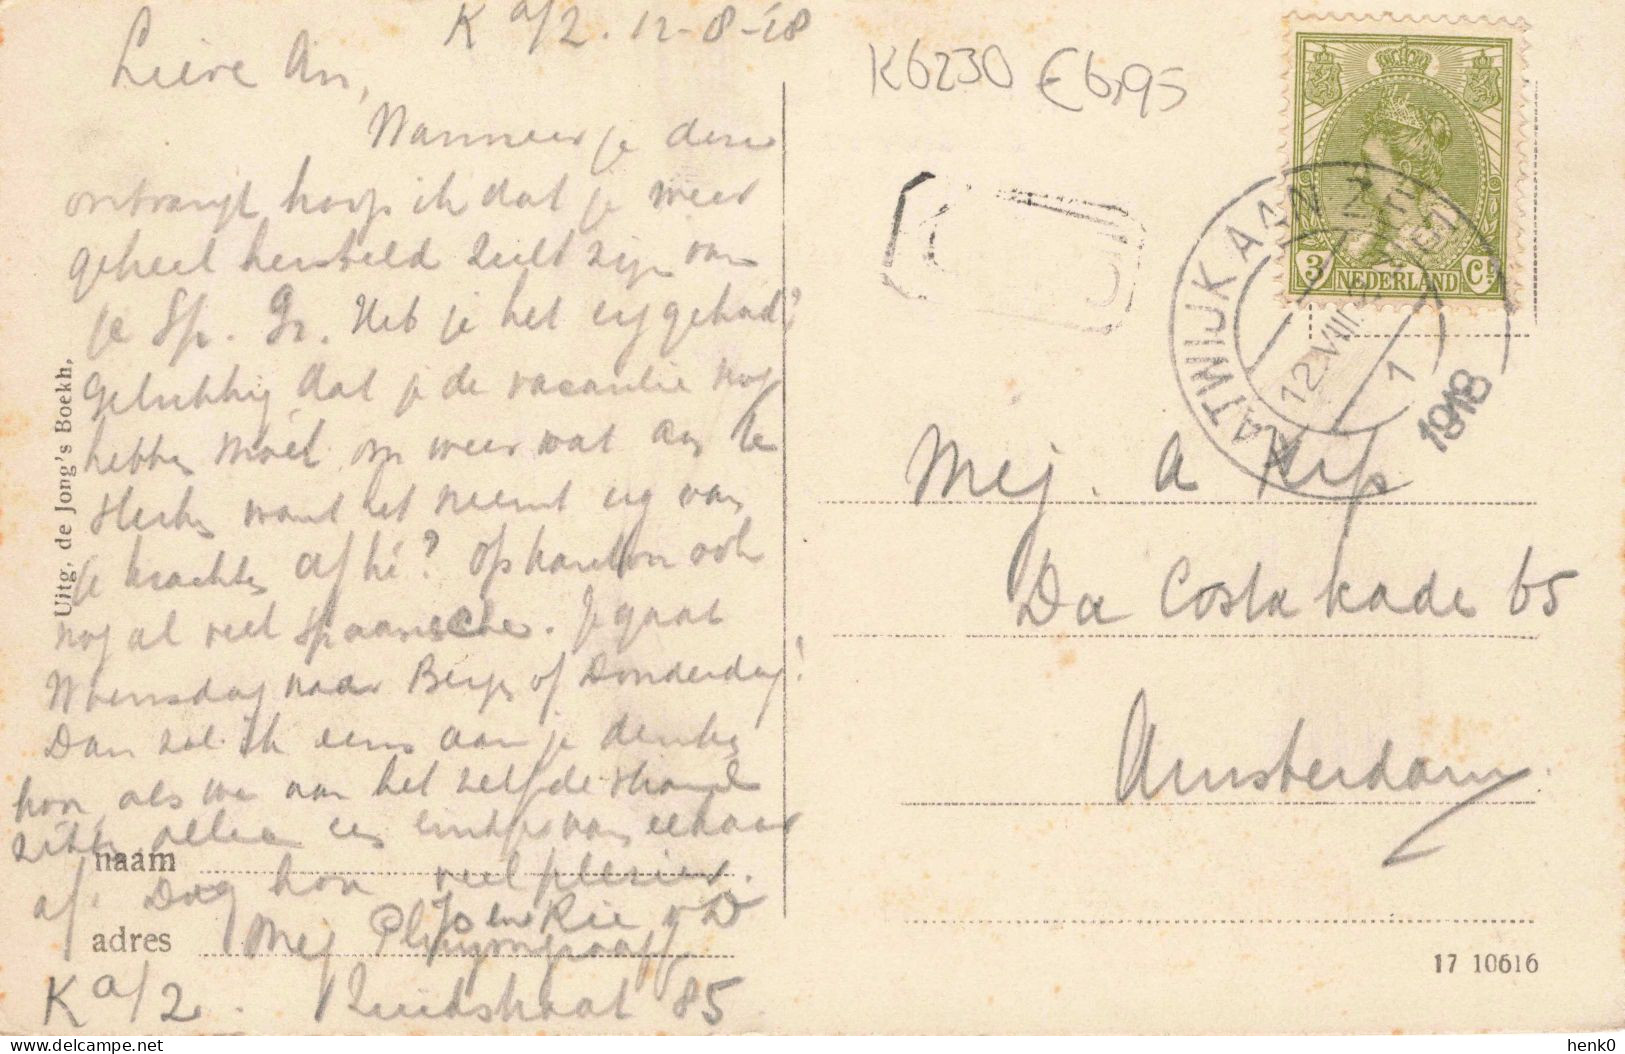 K a/Z. 12-8-18
Lieve An,
Wanneer je deze
ontvangt hoop ik dat je weer
geheel hersteld zult zijn van
je Sp. Gr. Heb je het erg gehad?
Gelukkig dat je de vacantie nog
hebben moet om weer wat aan te
sterken want het neemt erg van
je krachten af hé? Op kantoor ook
nog al veel Spaansche. Je gaat
Woensdag naar Bergen of Donderdag?
Dan zal ik eens aan je denken
hoor, als we aan het zelfde strand
zitten, alleen een eindje van elkaar
af. Dag hoor veel plezier.
Jo en Rie v D
naam
adres
Mej
K a/Z. Zuidstraat 85
Uitg. de Jong's Boekh.
K6230 €6,95
3 NEDERLAND Ct
KATWIJK AAN ZEE
12.VIII
1
1918
Mej. A Kip
Da Costa kade 65
Amsterdam.
17 10616
henk0
delcampe.net